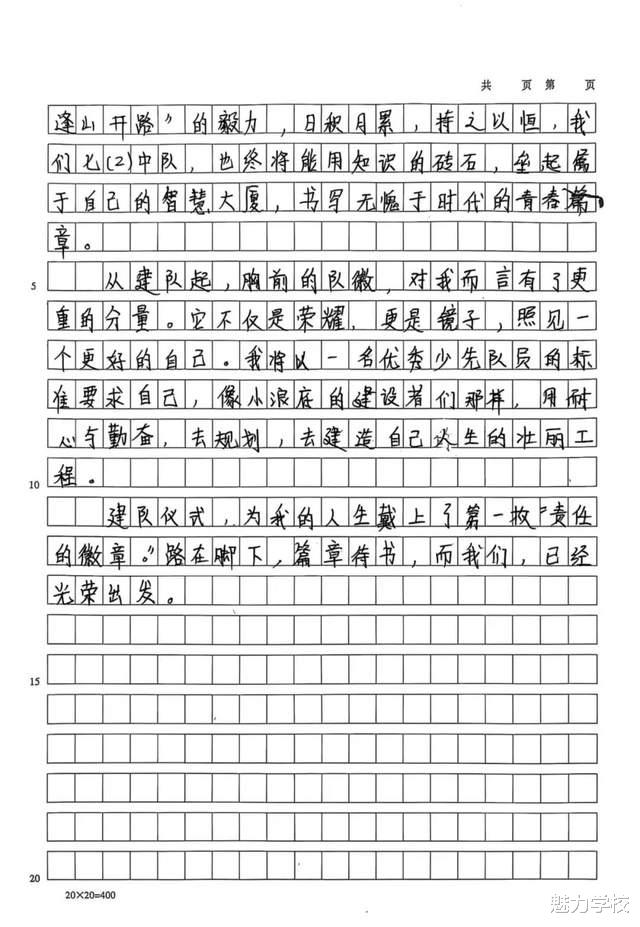 共 页 第 页
逢山开路”的毅力，日积月累，持之以恒，我
们七(2)中队，也终将能用知识的砖石，垒起属
于自己的智慧大厦，书写无愧于时代的青春篇
章。
5 从建队起，胸前的队徽，对我而言有了更
重的分量。它不仅是荣耀，更是镜子，照见一
个更好的自己。我将以一名优秀少先队员的标
准要求自己，像小浪底的建设者们那样，用耐
心与勤奋，去规划，去建造自己人生的壮丽工
10 程。
建队仪式，为我的人生戴上了第一枚“责任
的徽章。”路在脚下，篇章待书，而我们，已经
光荣出发。
15
20
20×20=400
魅力学校